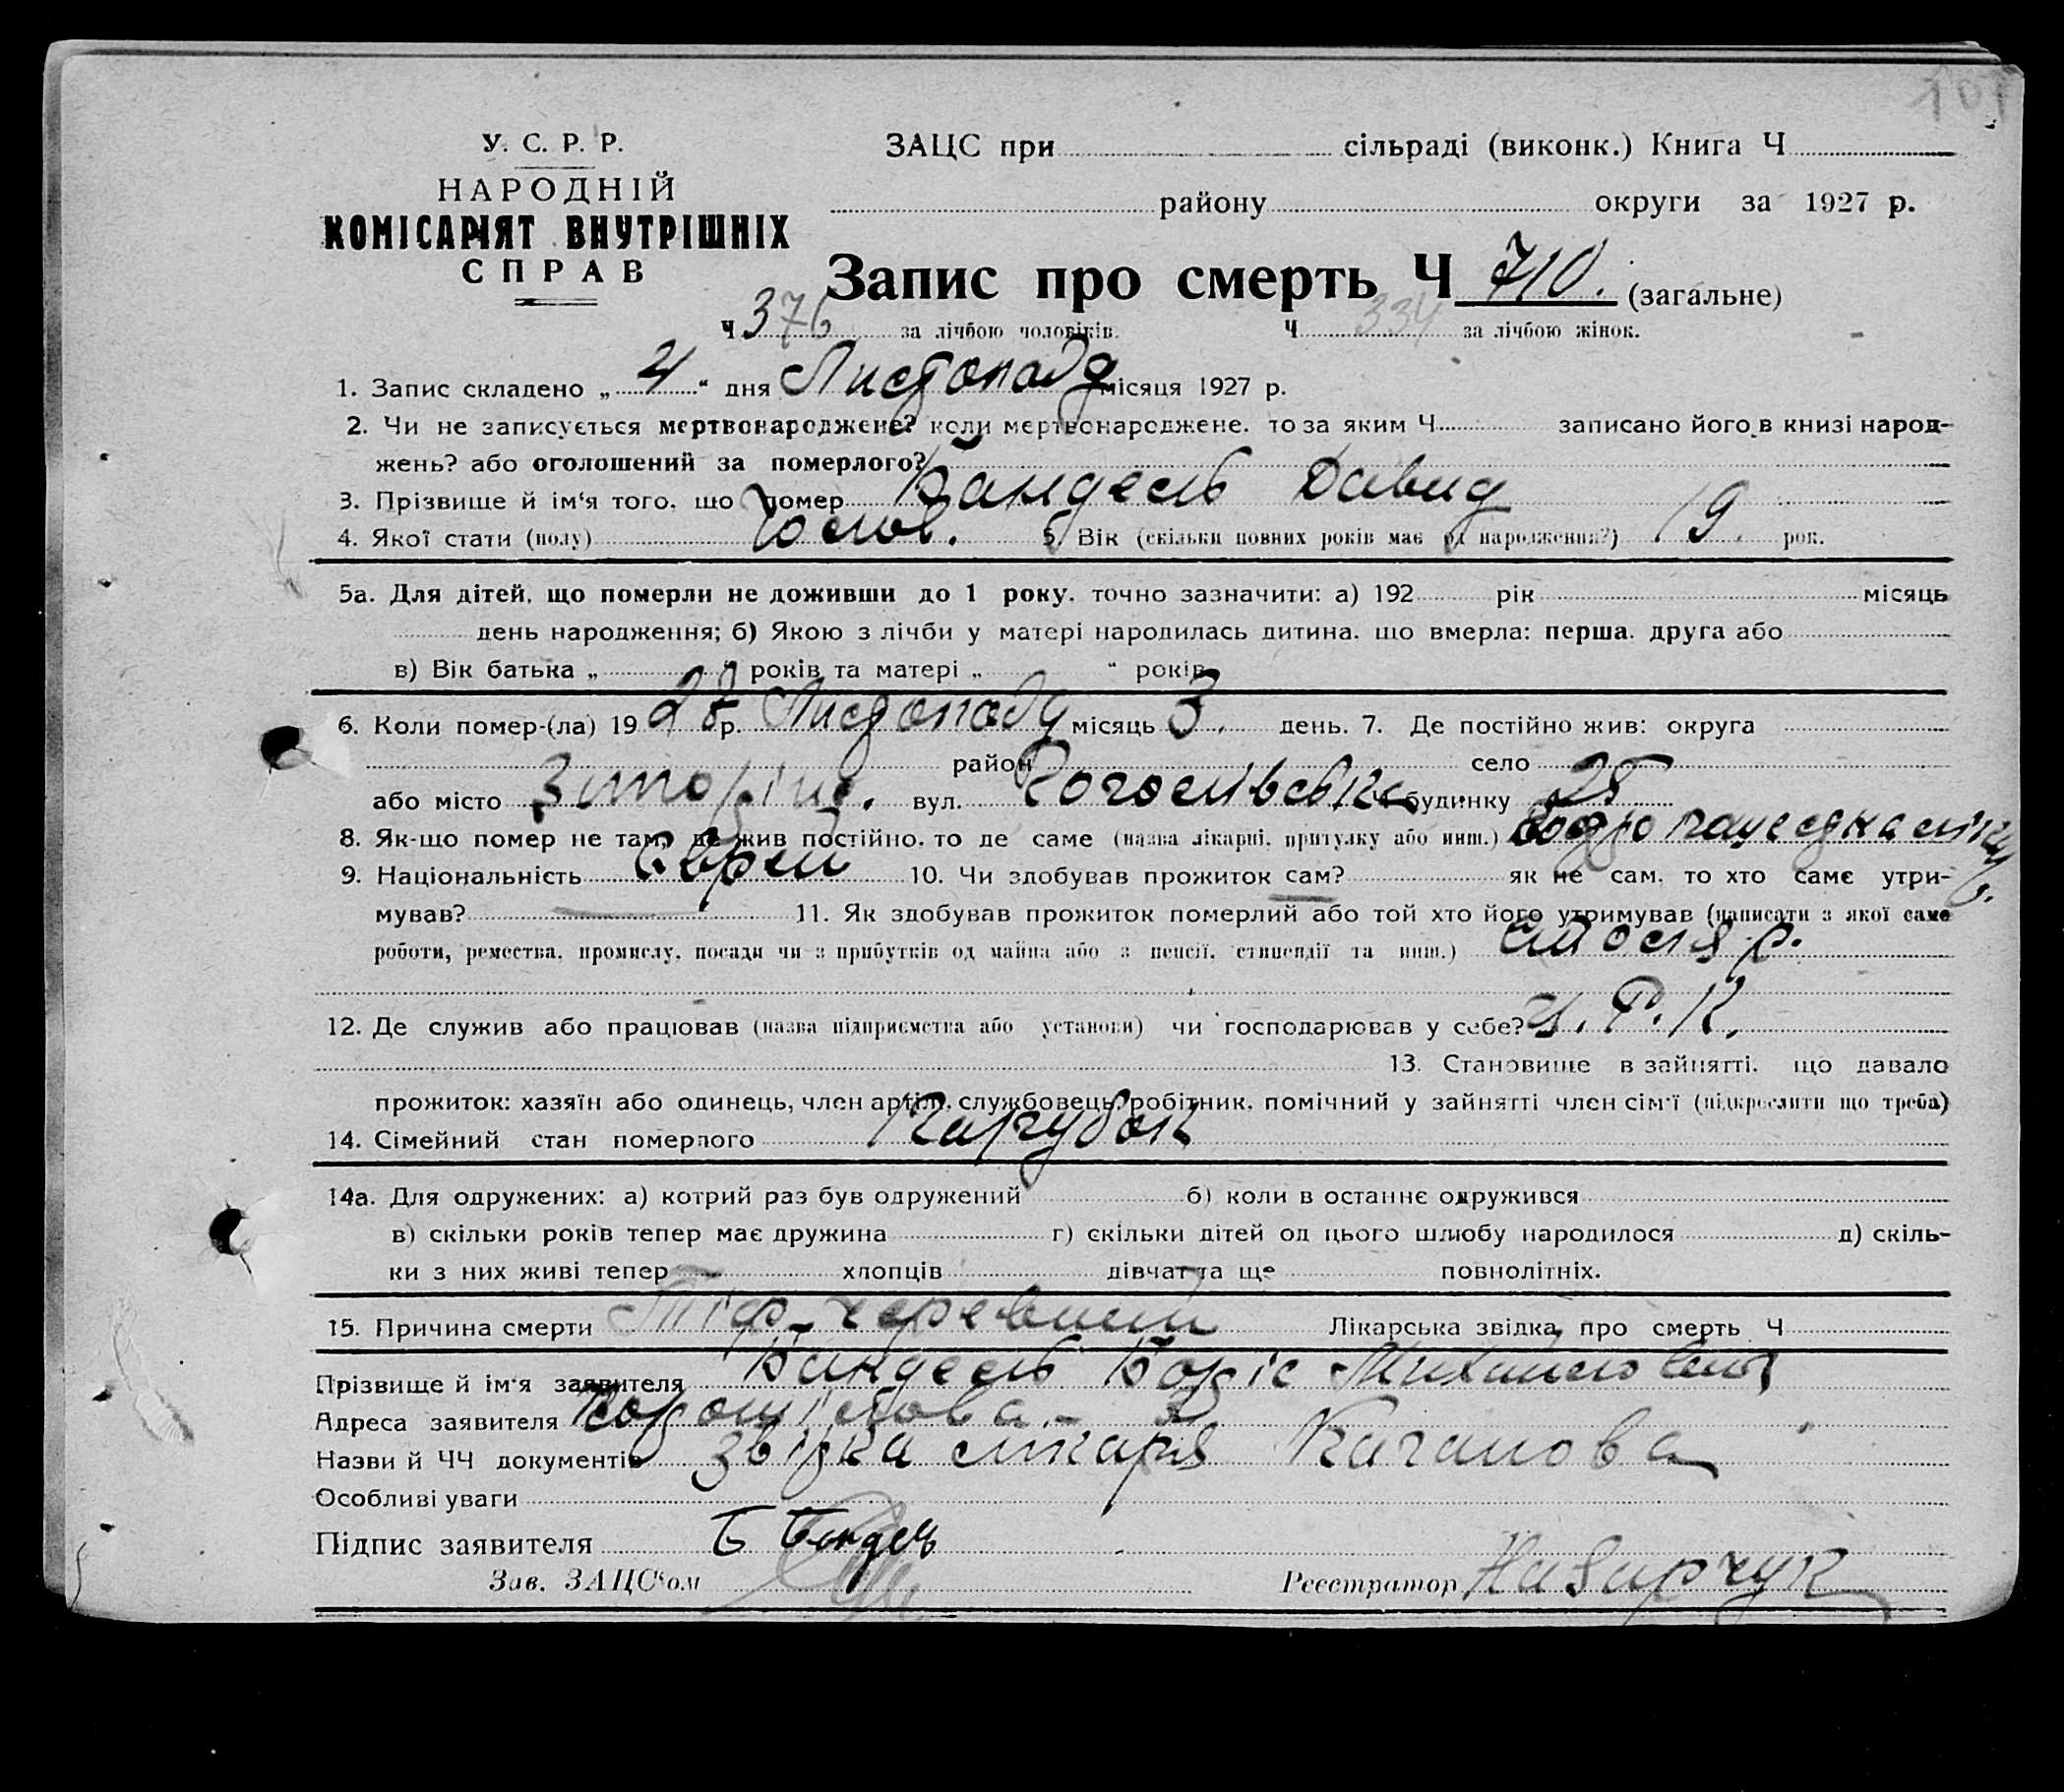 107
У. С. Р. Р.
НАРОДНІЙ
КОМІСАРІЯТ ВНУТРІШНІХ
СПРАВ
ЗАЦС при сільраді (виконк.) Книга Ч
району округи за 1927 р.
Запис про смерть Ч 710. (загальне)
Ч 376 за лічбою чоловіків. Ч 334 за лічбою жінок.
1. Запис складено „ 4 “ дня Листопаду місяця 1927 р.
2. Чи не записується мертвонароджене? коли мертвонароджене, то за яким Ч записано його в книзі народ-
жень? або оголошений за померлого?
3. Прізвище й ім‘я того, що помер Бандель Давид
4. Якої стати (полу) Чолов. 5. Вік (скільки повних років має од народження?) 19 рок.
5а. Для дітей, що померли не доживши до 1 року, точно зазначити: а) 192 рік місяць
день народження; б) Якою з лічби у матері народилась дитина, що вмерла: перша, друга або
в) Вік батька „ “ років та матері „ “ років
6. Коли помер-(ла) 19 27 р. Листопаду місяць 3. день. 7. Де постійно жив: округа
район село
або місто Житомір вул. будинку 25
8. Як-що помер не там, де жив постійно, то де саме (назва лікарні, притулку або инш.)
9. Національність Єврей 10. Чи здобував прожиток сам? як не сам, то хто саме утри-
мував? 11. Як здобував прожиток померлий або той хто його утримував (написати з якої саме
роботи, ремества, промислу, посади чи з прибутків од майна або з пенсії, стипендії та инш.) столяр.
12. Де служив або працював (назва підприємства або установи) чи господарював у себе? Ц. Р. К.
13. Становище в зайнятті, що давало
прожиток: хазяїн або одинець, член артілі, службовець, робітник, помічний у зайнятті член сім‘ї (підкреслити що треба)
14. Сімейний стан померлого Парубок
14а. Для одружених: а) котрий раз був одружений б) коли в останнє одружився
в) скільки років тепер має дружина г) скільки дітей од цього шлюбу народилося д) скіль-
ки з них живі тепер хлопців дівчат та ще повнолітніх.
15. Причина смерти Тіф-черевний Лікарська звідка про смерть Ч
Прізвище й ім‘я заявителя Бандель Боріс Михайлович
Адреса заявителя
Назви й ЧЧ документів звідка лікаря Каганова
Особливі уваги
Підпис заявителя Б Бандель
Зав. ЗАЦС‘ом Реєстратор Назарчук